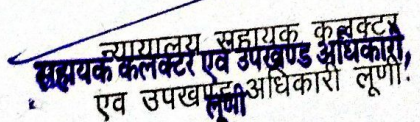 न्यायालय सहायक कलक्टर
सहायक कलक्टर एवं उपखण्ड अधिकारी,
एवं उपखण्ड अधिकारी लूणी
लूणी